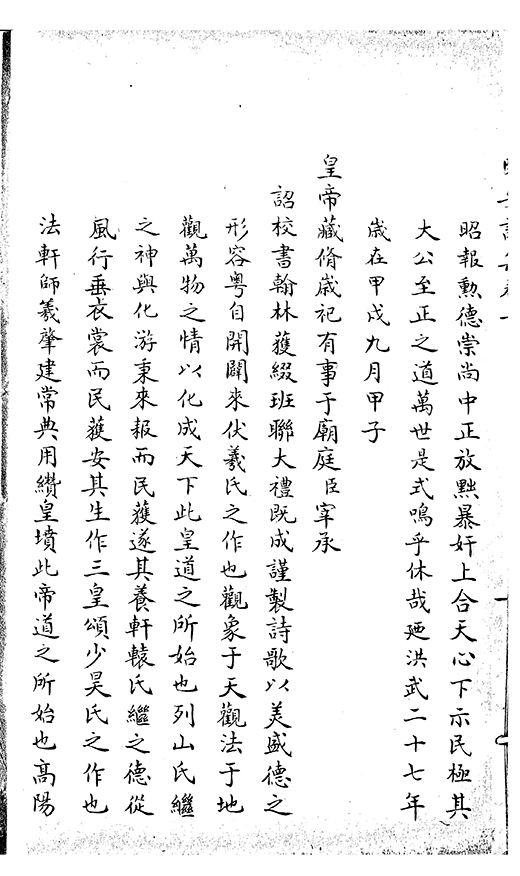 昭報勲德崇尚中正放黜暴奸上合天心下示民極其
大公至正之道萬世是式嗚乎休哉廼洪武二十七年
歳在甲戌九月甲子
皇帝藏脩歳祀有事于廟庭臣寜承
詔校書翰林獲綴班聯大禮既成謹製詩歌以美盛德之
形容粤自開闢來伏羲氏之作也觀象于天觀法于地
觀萬物之情以化成天下此皇道之所始也列山氏繼
之神與化游秉耒報而民獲遂其養軒轅氏繼之德從
風行垂衣裳而民獲安其生作三皇頌少昊氏之作也
法軒師羲肇建常典用纘皇墳此帝道之所始也高陽